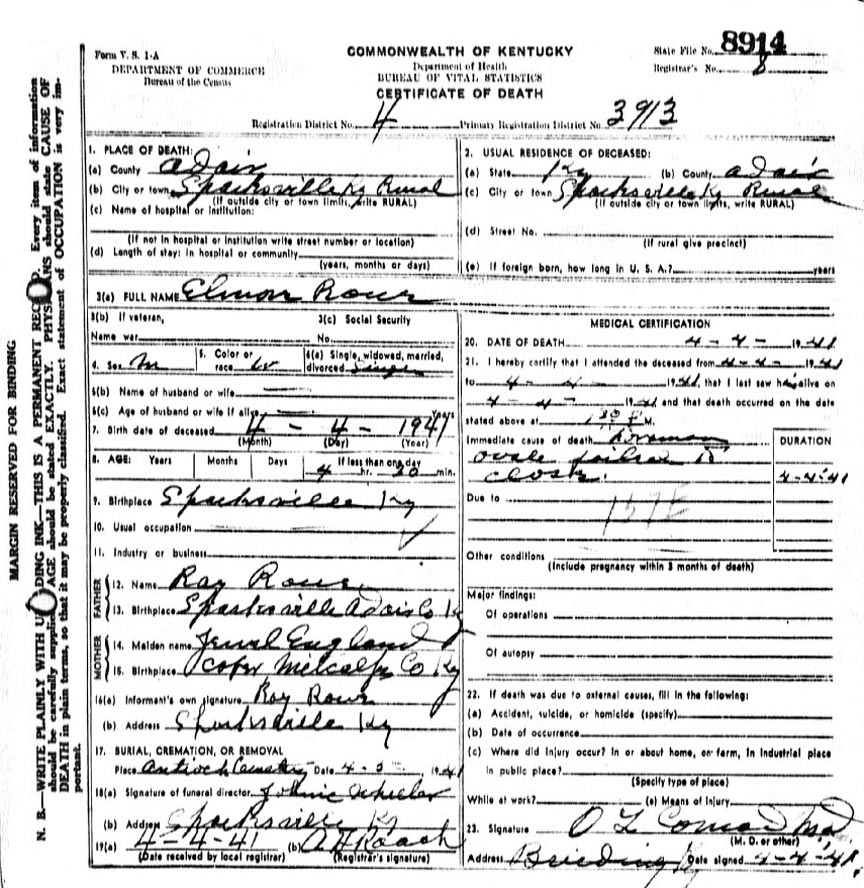 Form V. S. 1-A
DEPARTMENT OF COMMERCE
Bureau of the Census
COMMONWEALTH OF KENTUCKY
Department of Health
BUREAU OF VITAL STATISTICS
CERTIFICATE OF DEATH
State File No. 8914
Registrar's No. 8
Registration District No. 4 Primary Registration District No. 3913
MARGIN RESERVED FOR BINDING
N. B.—WRITE PLAINLY WITH UNFADING INK—THIS IS A PERMANENT RECORD. Every item of information
should be carefully supplied. AGE should be stated EXACTLY. PHYSICIANS should state CAUSE OF
DEATH in plain terms, so that it may be properly classified. Exact statement of OCCUPATION is very im-
portant.
1. PLACE OF DEATH:
(a) County Adair
(b) City or town Sparksville Ky Rural
(If outside city or town limits, write RURAL)
(c) Name of hospital or institution:
(If not in hospital or institution write street number or location)
(d) Length of stay: in hospital or community
(years, months or days)
2. USUAL RESIDENCE OF DECEASED:
(a) State Ky (b) County Adair
(c) City or town Sparksville Ky Rural
(If outside city or town limits, write RURAL)
(d) Street No.
(If rural give precinct)
(e) If foreign born, how long in U. S. A.? years
3(a) FULL NAME Elmon Rowe
3(b) If veteran,
Name war
3(c) Social Security
No.
4. Sex M 5. Color or
race W 6(a) Single, widowed, married,
divorced Single
6(b) Name of husband or wife
6(c) Age of husband or wife if alive years
7. Birth date of deceased 4 - 4 - 1941
(Month) (Day) (Year)
8. AGE: Years Months Days If less than one day
4 hr. 20 min.
9. Birthplace Sparksville Ky
10. Usual occupation
11. Industry or business
FATHER
12. Name Ray Rowe
13. Birthplace Sparksville Adair Co Ky
MOTHER
14. Maiden name Jewel England
15. Birthplace Metcalfe Co Ky
16(a) Informant's own signature Roy Rowe
(b) Address Sparksville Ky
17. BURIAL, CREMATION, OR REMOVAL
Place Antioch Cemetery Date 4-5- 1941
18(a) Signature of funeral director Johnie Wheeler
(b) Address Sparksville Ky
19(a) 4-4-41 (b) A H Roach
(Date received by local registrar) (Registrar's signature)
MEDICAL CERTIFICATION
20. DATE OF DEATH 4 - 4 - 1941
21. I hereby certify that I attended the deceased from 4-4- 1941
to 4 - 4 - 1941, that I last saw him alive on
4 - 4 - 1941 and that death occurred on the date
stated above at M.
Immediate cause of death Foramen
ovale failed to
close.
DURATION
4-4-41
Due to 157E
Other conditions
(Include pregnancy within 3 months of death)
Major findings:
Of operations
Of autopsy
22. If death was due to external causes, fill in the following:
(a) Accident, suicide, or homicide (specify)
(b) Date of occurrence
(c) Where did injury occur? In or about home, on farm, in industrial place
in public place?
(Specify type of place)
While at work? (e) Means of Injury
23. Signature O L Conrad Md
(M. D. or other)
Address Breeding Ky Date signed 4-4-41